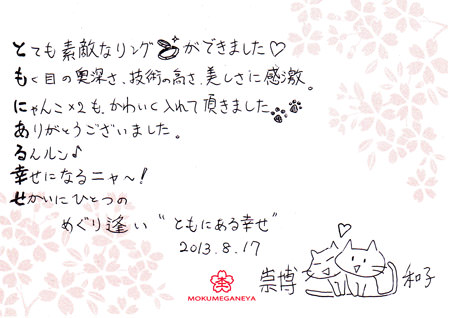 とても素敵なリングができました♡
もく目の奥深さ、技術の高さ、美しさに感激。
にゃんこ×2も、かわいく入れて頂きました
ありがとうございました。
るんルン♪
幸せになるニャ〜!
せかいにひとつの
めぐり逢い“ともにある幸せ”
2013.8.17
MOKUMEGANEYA
崇博 和子